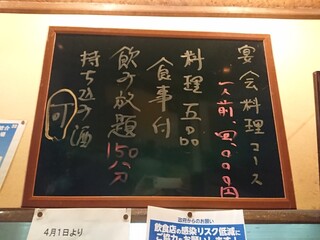 宴会料理コース
一人前、四、〇〇〇円
料理五品
食事付
飲み放題150分
持ち込み酒
可
4月1日より
政府からのお願い
飲食店の感染リスク低減に
ご協力をお願いします!